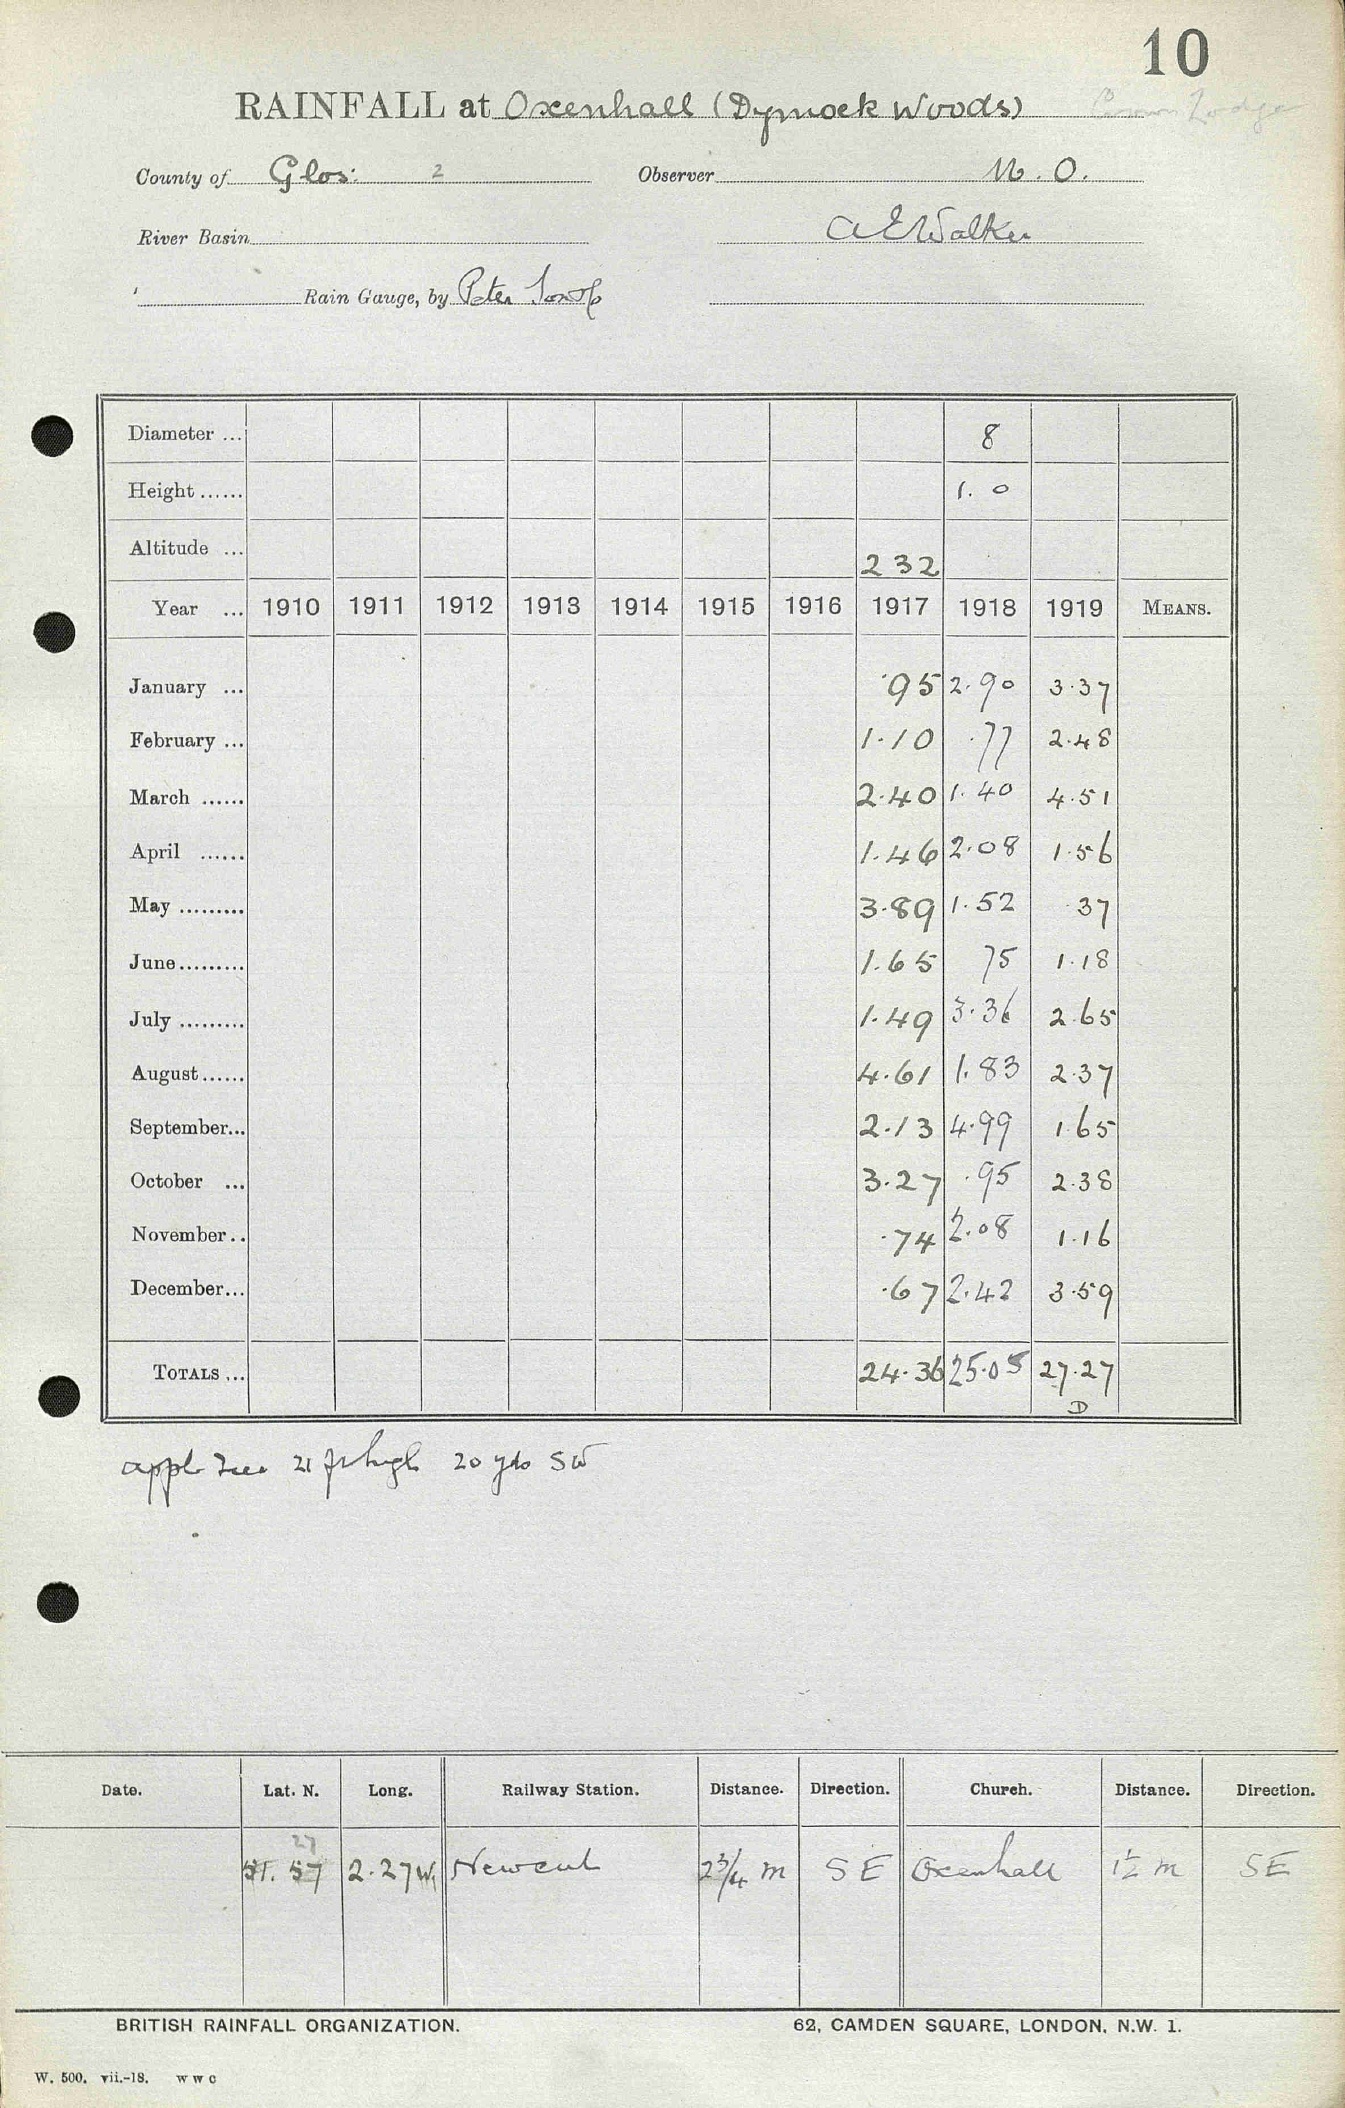 10
RAINFALL at Oxenhall (Dymock Woods) Crown Lodge
County of Glos: 2 Observer M. O.
River Basin A E Walker
Rain Gauge, by Peter
Diameter ... 8
Height ...... 1. 0
Altitude ... 232
Year ... 1910 1911 1912 1913 1914 1915 1916 1917 1918 1919 MEANS.
January ... .95 2.90 3.37
February ... 1.10 .77 2.48
March ...... 2.40 1.40 4.51
April ...... 1.46 2.08 1.56
May ......... 3.89 1.52 .37
June......... 1.65 75 1.18
July ......... 1.49 3.36 2.65
August...... 4.61 1.83 2.37
September... 2.13 4.99 1.65
October ... 3.27 .95 2.38
November.. .74 2.08 1.16
December... .67 2.42 3.59
TOTALS ... 24.36 25.05 27.27
D
apple tree 21 ft high 20 yds SW
Date. Lat. N. Long. Railway Station. Distance. Direction. Church. Distance. Direction.
27
51. 57 2.27W. Newent 2 3/4 m SE Oxenhall 1 1/2 m SE
BRITISH RAINFALL ORGANIZATION. 62, CAMDEN SQUARE, LONDON, N.W. 1.
W. 500. vii.-18. W W C